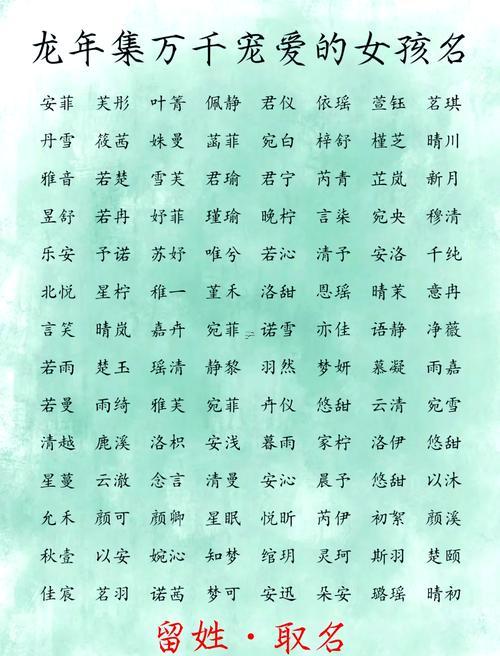 龙年集万千宠爱的女孩名
安菲 芙彤 叶箐 佩静 君仪 依瑶 萱钰 茗琪
丹雪 筱茜 姝曼 菡菲 宛白 梓舒 槿芝 晴川
雅音 若楚 雪芙 君瑜 君宁 芮青 芷岚 新月
昱舒 若冉 妤菲 瑾瑜 晚柠 言柒 宛央 穆清
乐安 予诺 苏妤 唯兮 若沁 清予 安洛 千纯
北悦 星柠 稚一 堇禾 洛甜 恩瑶 晴茉 意冉
言笑 晴岚 嘉卉 宛菲 诺雪 亦佳 语静 净薇
若雨 楚玉 瑶清 静黎 羽然 梦妍 慕凝 雨嘉
若曼 雨绮 雅芙 宛菲 卉仪 悠甜 云清 宛雪
清越 鹿溪 洛枳 安浅 暮雨 家柠 洛伊 悠甜
星蔓 云澈 念言 清曼 安沁 晨予 悠甜 以沐
允禾 颜可 颜卿 星眠 悦昕 芮伊 初絮 颜溪
秋壹 以安 婉沁 知梦 绾玥 灵珂 斯羽 楚颐
佳宸 茗羽 诺茜 梦可 安迅 朵安 璐瑶 晴初
留姓·取名